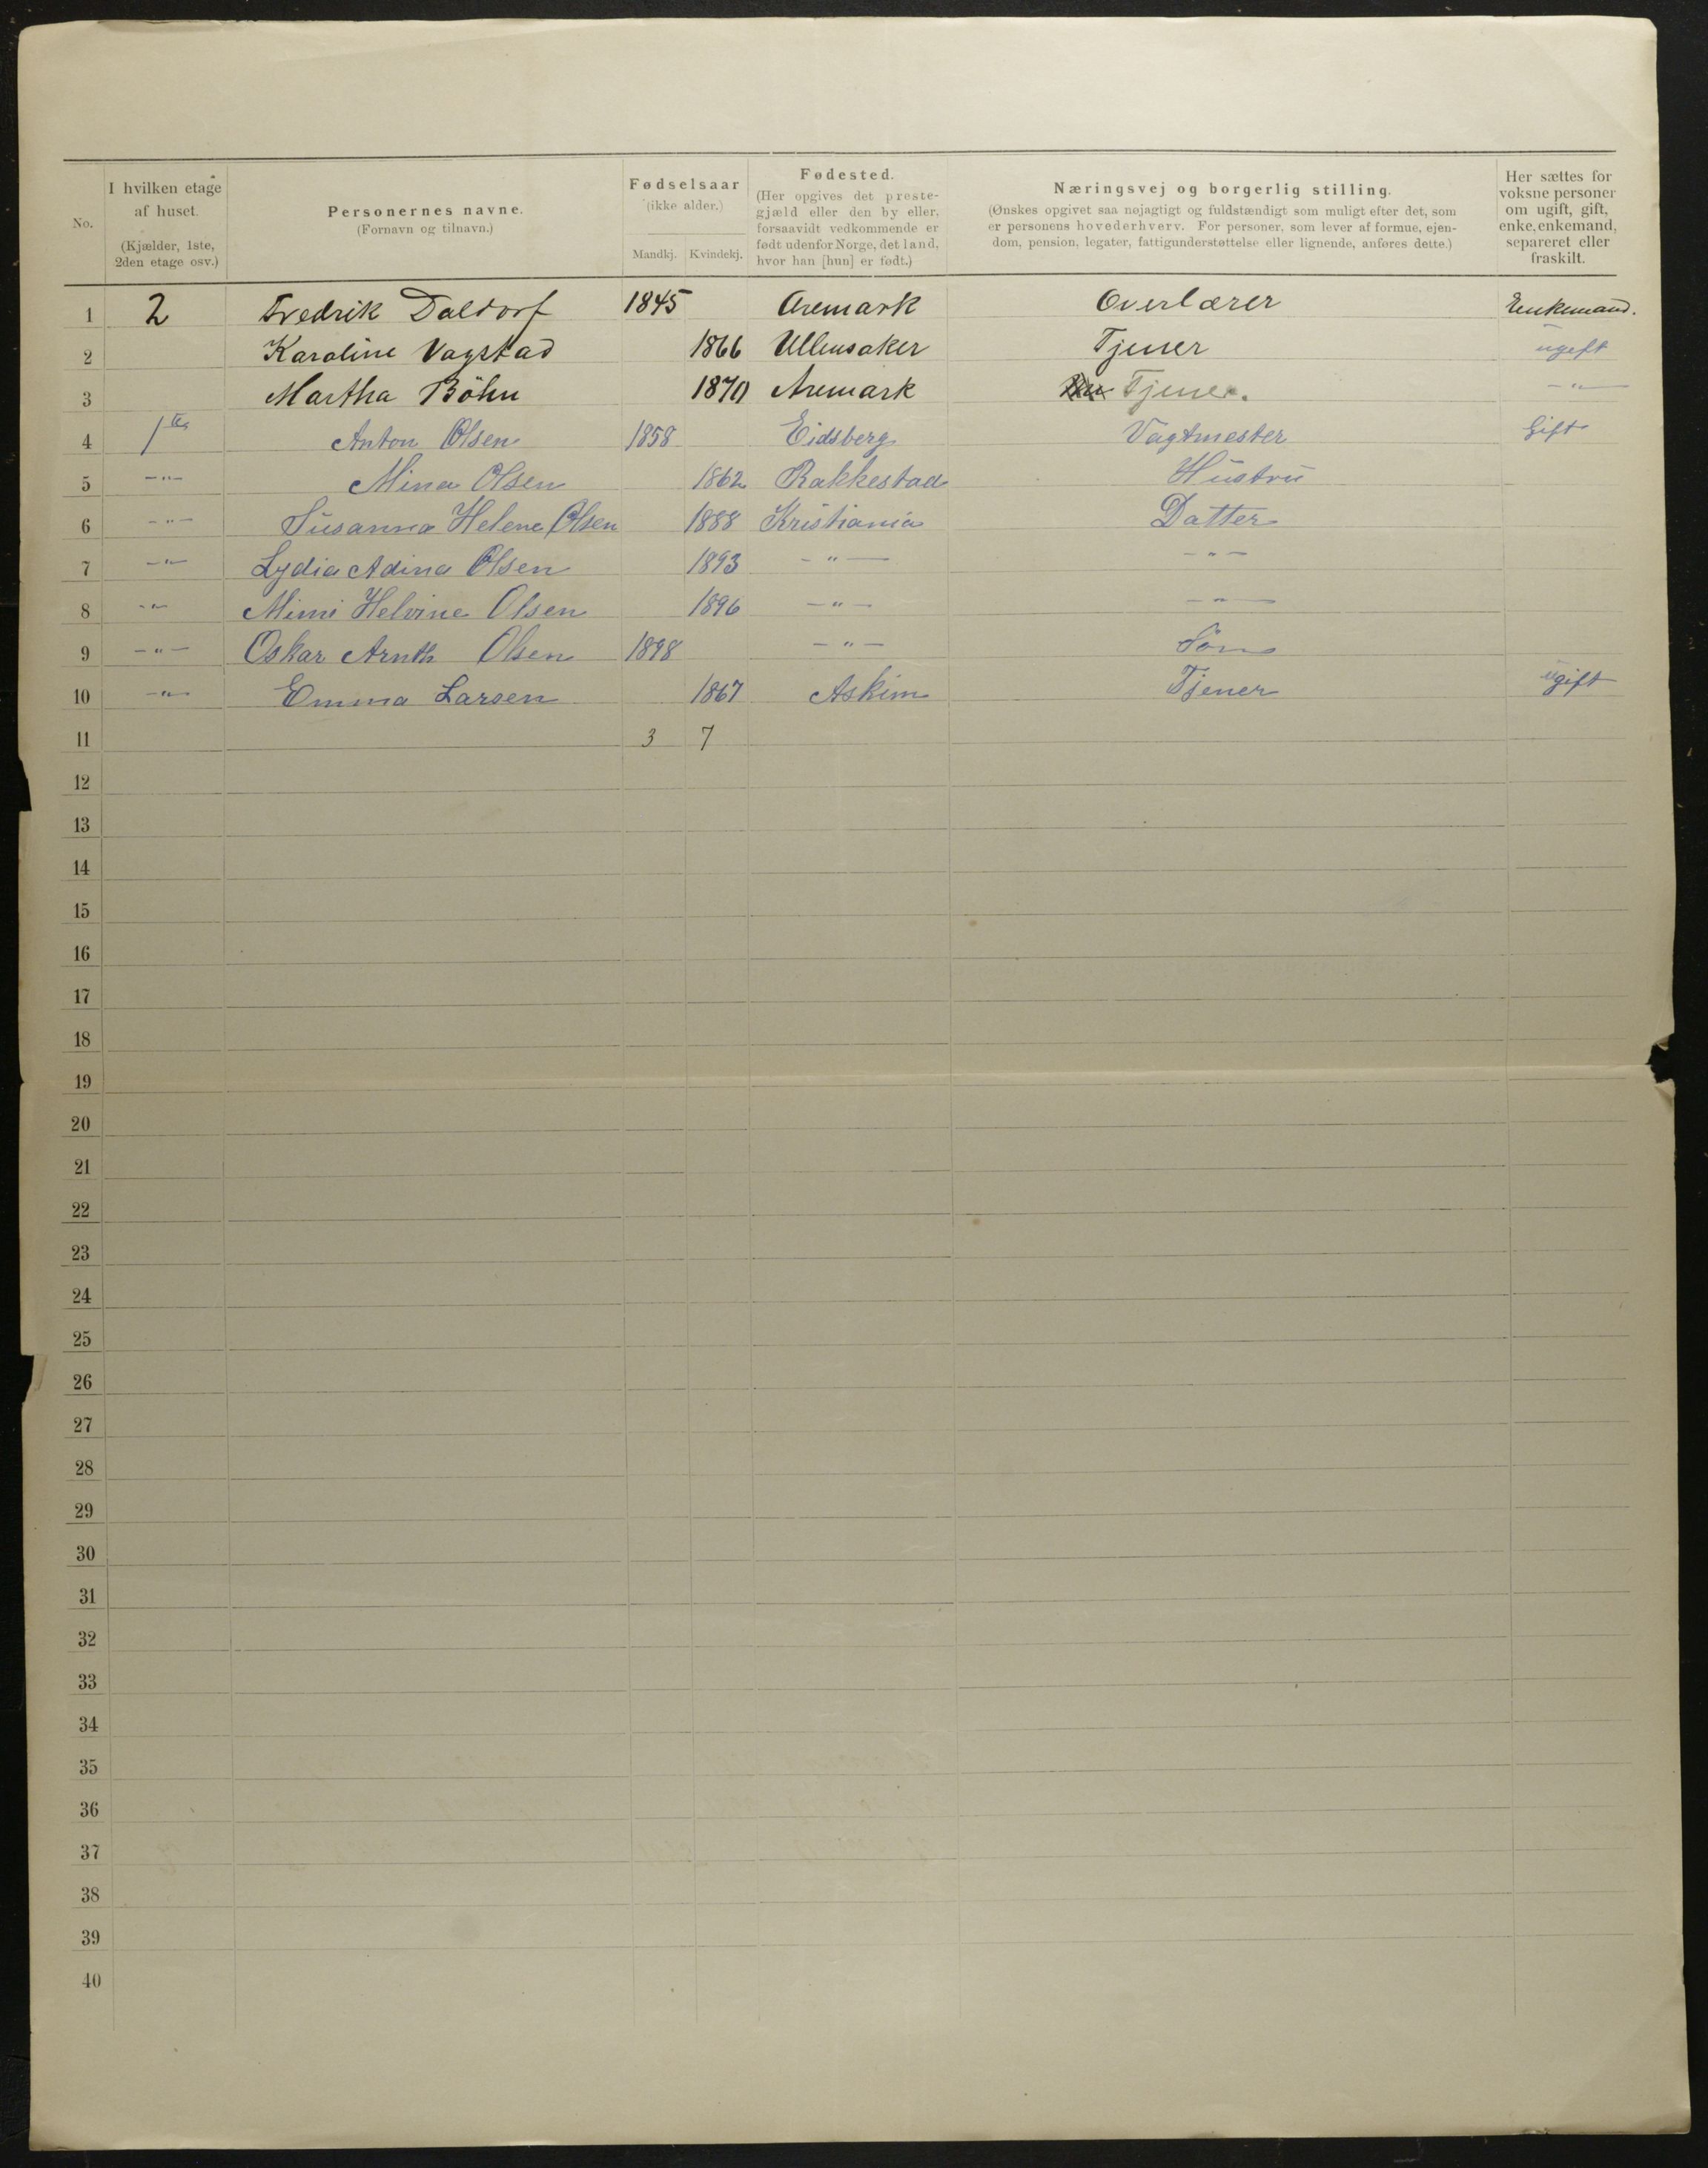 No.
I hvilken etage af huset.
(Kjælder, 1ste, 2den etage osv.)
Personernes navne.
(Fornavn og tilnavn.)
Fødselsaar
(ikke alder.)
Mandkj. Kvindekj.
Fødested.
(Her opgives det preste-
gjæld eller den by eller,
forsaavidt vedkommende er
født udenfor Norge, det land,
hvor han [hun] er født.)
Næringsvej og borgerlig stilling.
(Ønskes opgivet saa nøjagtigt og fuldstændigt som muligt efter det, som
er personens hovederhverv. For personer, som lever af formue, ejen-
dom, pension, legater, fattigunderstøttelse eller lignende, anføres dette.)
Her sættes for
voksne personer
om ugift, gift,
enke, enkemand,
separeret eller
fraskilt.
1 2 Fredrik Daldorf 1845 Aremark Overlærer Enkemand.
2 Karoline Vagstad 1866 Ullensaker Tjener ugift
3 Martha Böhn 1870 Aremark Tjener. -"-
4 1ste Anton Olsen 1858 Eidsberg Vagtmester Gift
5 -"- Mina Olsen 1862 Rakkestad Hustru
6 -"- Susanna Helene Olsen 1888 Kristiania Datter
7 -"- Lydia Adina Olsen 1893 -"- -"-
8 -"- Mimi Helvine Olsen 1896 -"- -"-
9 -"- Oskar Arnth Olsen 1898 -"- Søn
10 -"- Emma Larsen 1867 Askim Tjener ugift
11 3 7
12
13
14
15
16
17
18
19
20
21
22
23
24
25
26
27
28
29
30
31
32
33
34
35
36
37
38
39
40